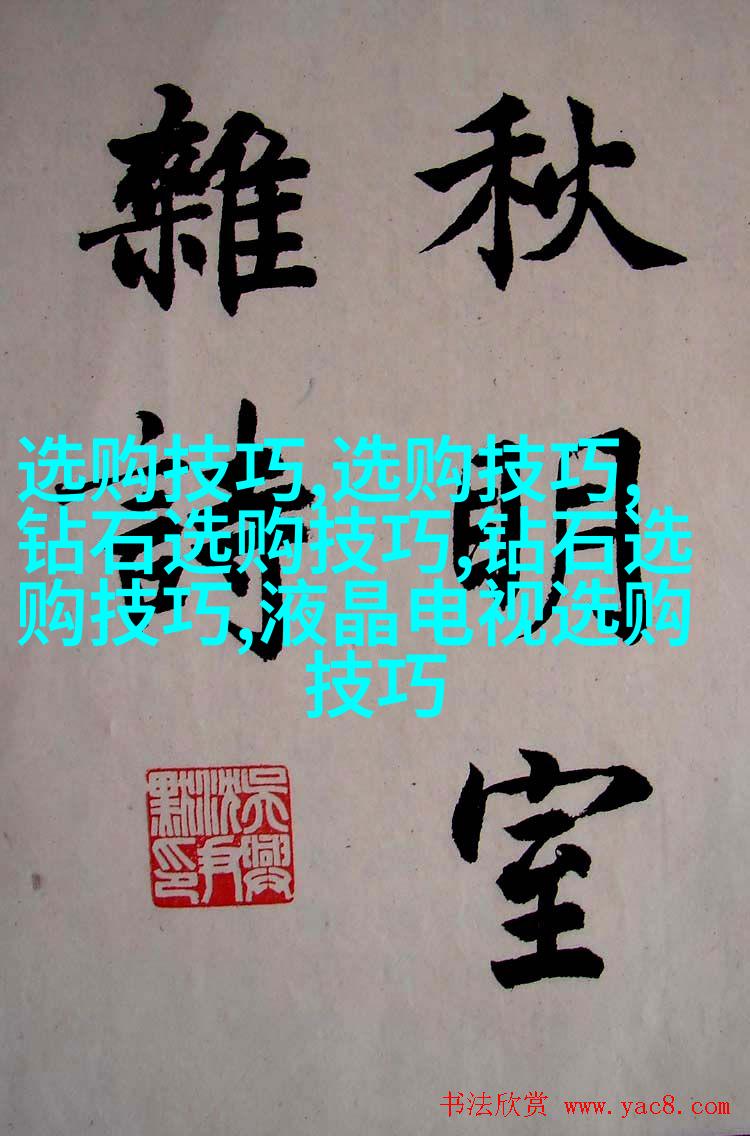 秋明室
雜詩
吳興沈尹默印
选购技巧,选购技巧,
钻石选购技巧,钻石选
购技巧,液晶电视选购
技巧
书法欣赏 www.yac8.com